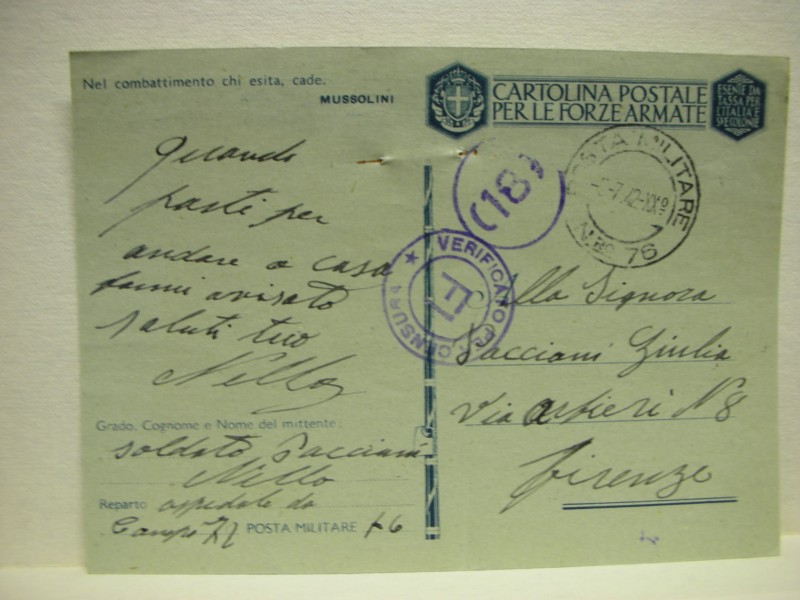 Nel combattimento chi esita, cade.
MUSSOLINI
CARTOLINA POSTALE
PER LE FORZE ARMATE
ESENTE DA
TASSA PER
L'ITALIA E
SUE COLONIE
Quando
parti per
andare a casa
fammi avisato
saluti tuo
Nello
Grado, Cognome e Nome del mittente
soldato Pacciani
Nello
Reparto ospedale da
Campo POSTA MILITARE 76
(18)
VERIFICATO PER CENSURA
POSTA MILITARE
N. 76
Alla Signora
Pacciani Giulia
Via N 8
Firenze